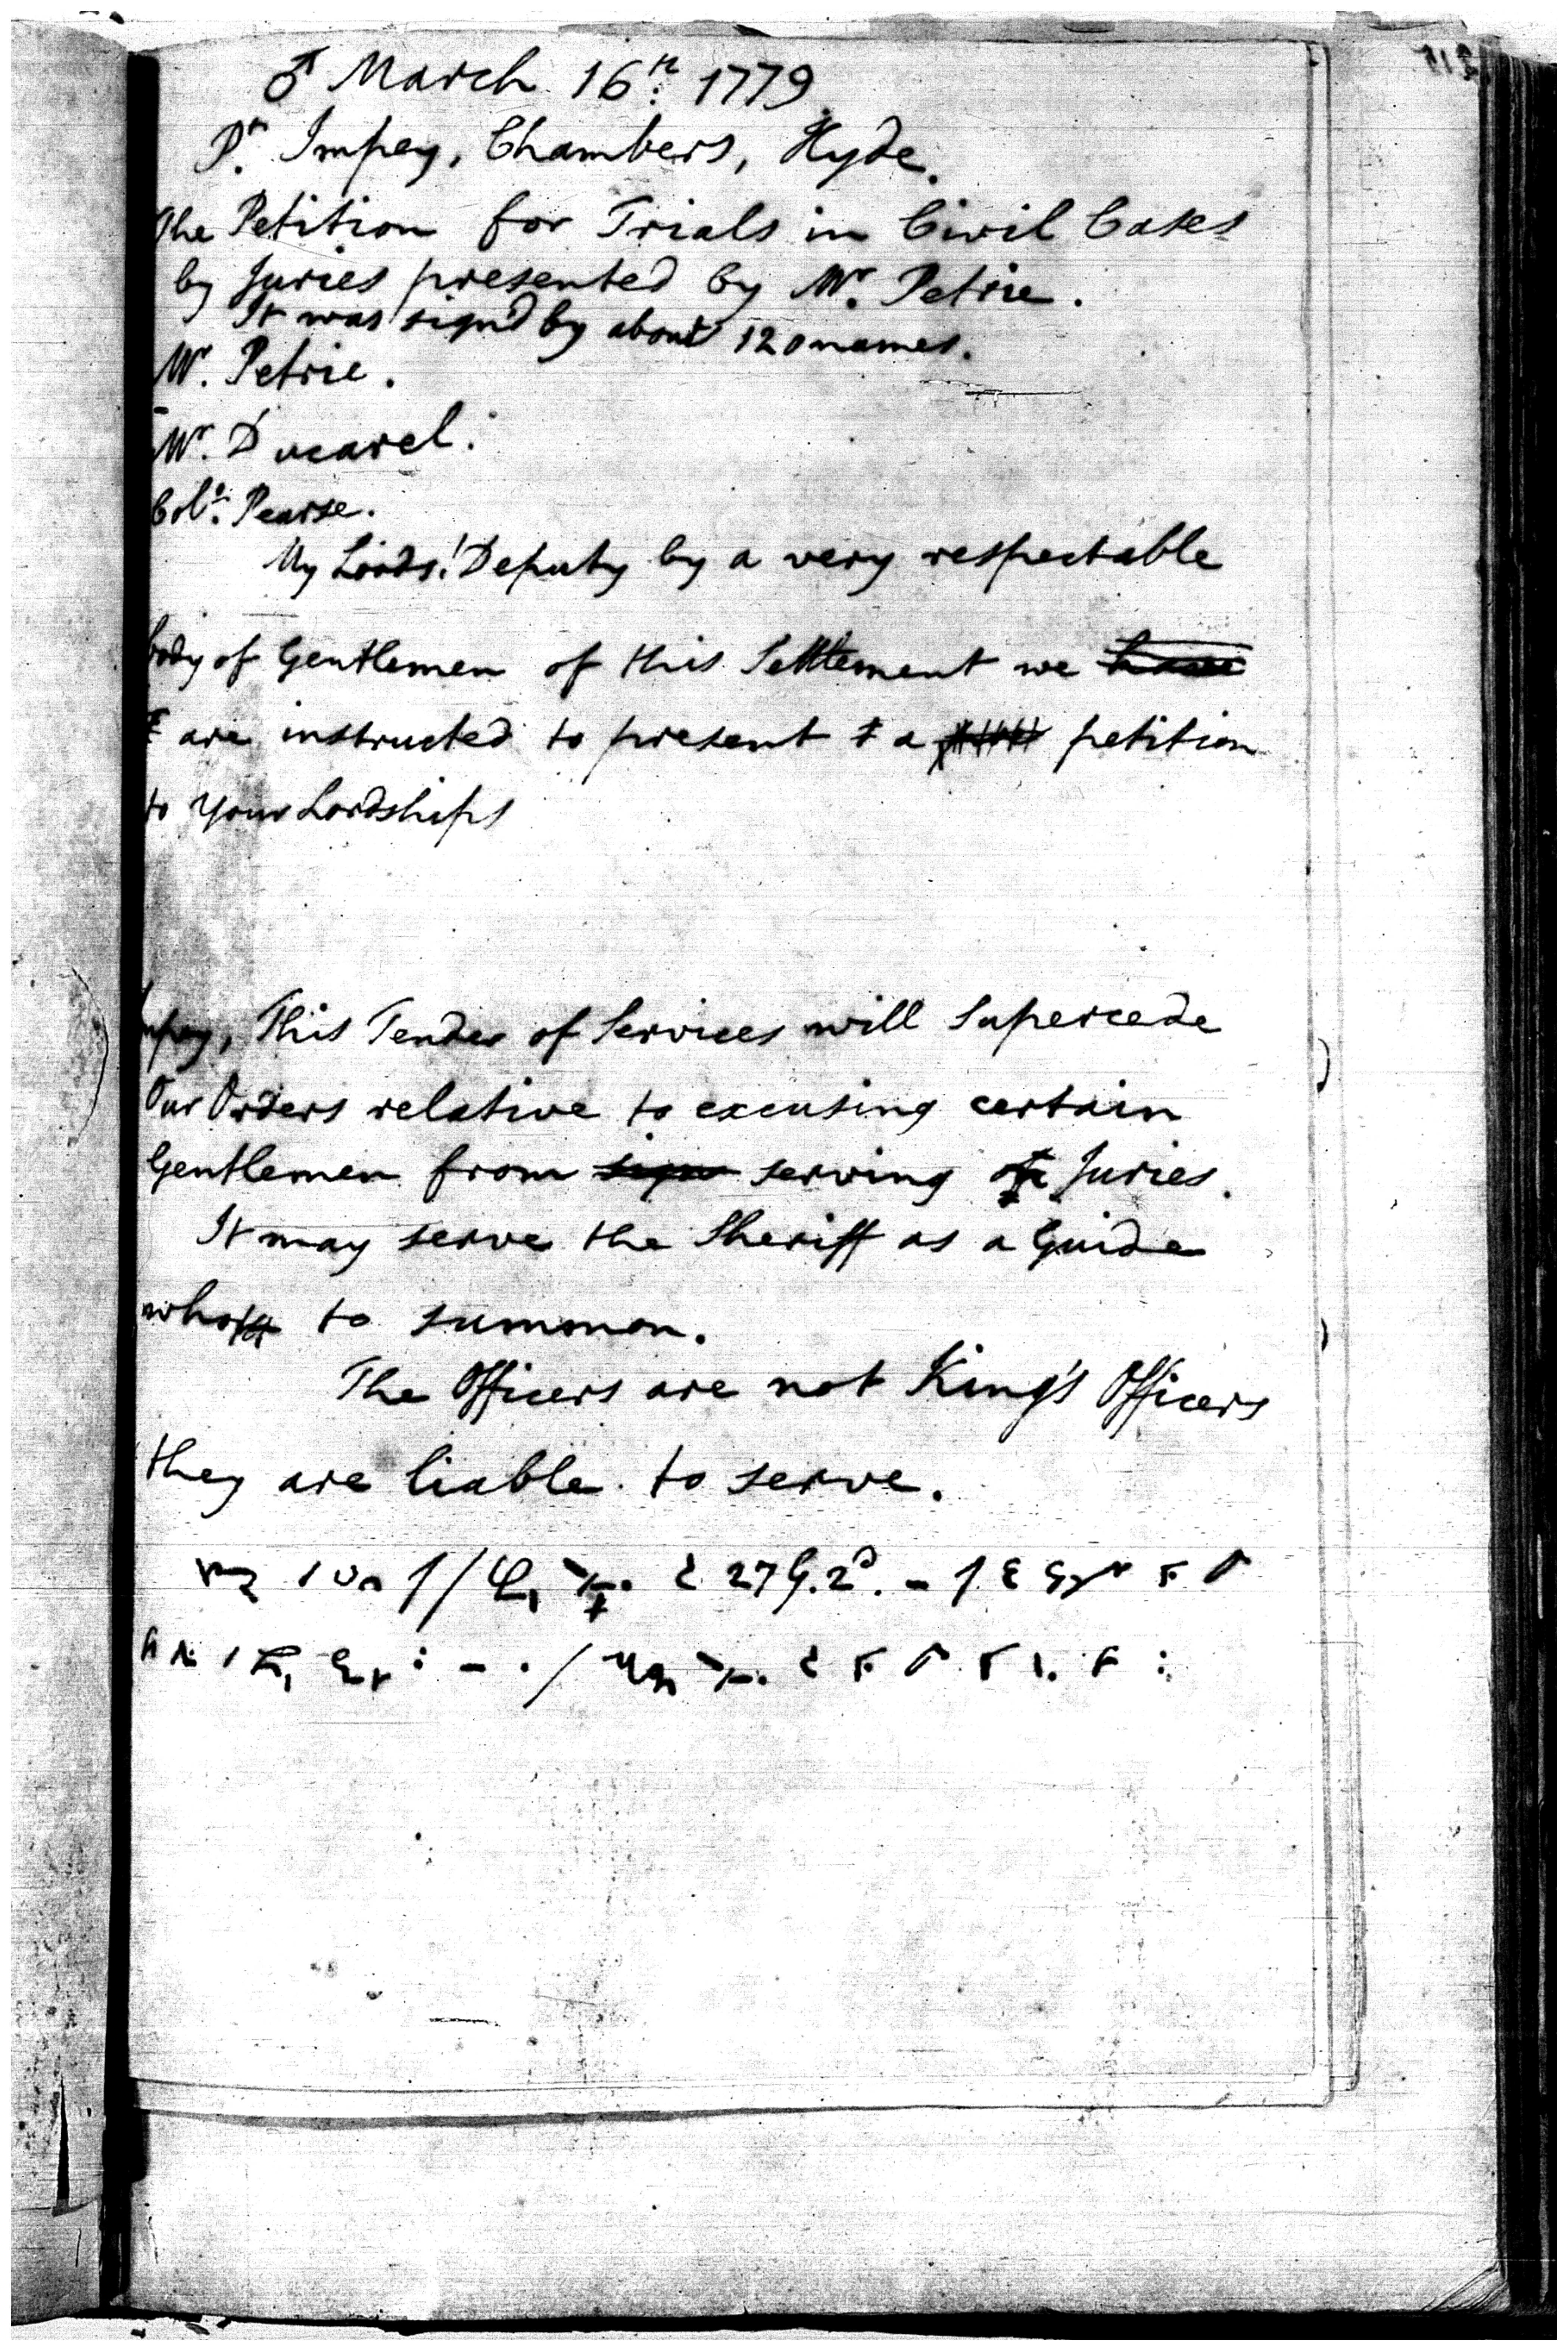 ♂ March 16th. 1779
Pt. Impey, Chambers, Hyde.
The Petition for Trials in Civil Cases
by Juries presented by Mr. Petrie.
It was sign'd by about 120 names.
Mr. Petrie.
Mr. Ducarel.
Colo. Pearse.
My Lords! Deputy by a very respectable
body of Gentlemen of this Settlement we
are instructed to present a petition
to your Lordships
Impey, This Tender of Services will Supercede
Our Orders relative to excusing certain
Gentlemen from serving on Juries.
It may serve the Sheriff as a Guide
whom to summon.
The Officers are not King's Officers
they are liable to serve.
27 G. 2d.